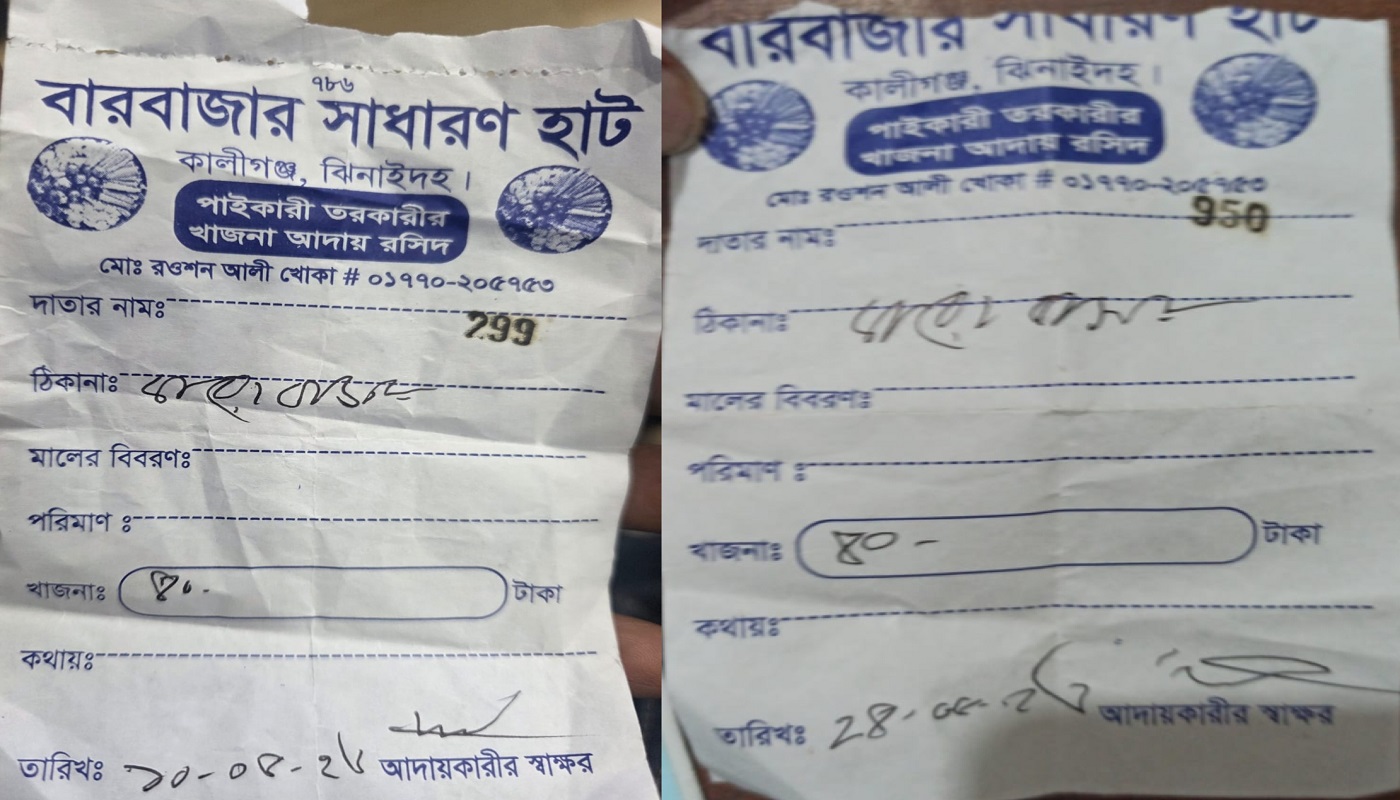 ৭৮৬
বারবাজার সাধারণ হাট
কালীগঞ্জ, ঝিনাইদহ।
পাইকারী তরকারীর
খাজনা আদায় রসিদ
মোঃ রওশন আলী খোকা # ০১৭৭০-২০৫৭৫৩
দাতার নামঃ
299
ঠিকানাঃ
মালের বিবরণঃ
পরিমাণ ঃ
খাজনাঃ ৪০ টাকা
কথায়ঃ
তারিখঃ আদায়কারীর স্বাক্ষর
বারবাজার সাধারণ হাট
কালীগঞ্জ, ঝিনাইদহ।
পাইকারী তরকারীর
খাজনা আদায় রসিদ
মোঃ রওশন আলী খোকা # ০১৭৭০-২০৫৭৫৩
950
দাতার নামঃ
ঠিকানাঃ
মালের বিবরণঃ
পরিমাণ ঃ
খাজনাঃ ৪০ - টাকা
কথায়ঃ
তারিখঃ আদায়কারীর স্বাক্ষর